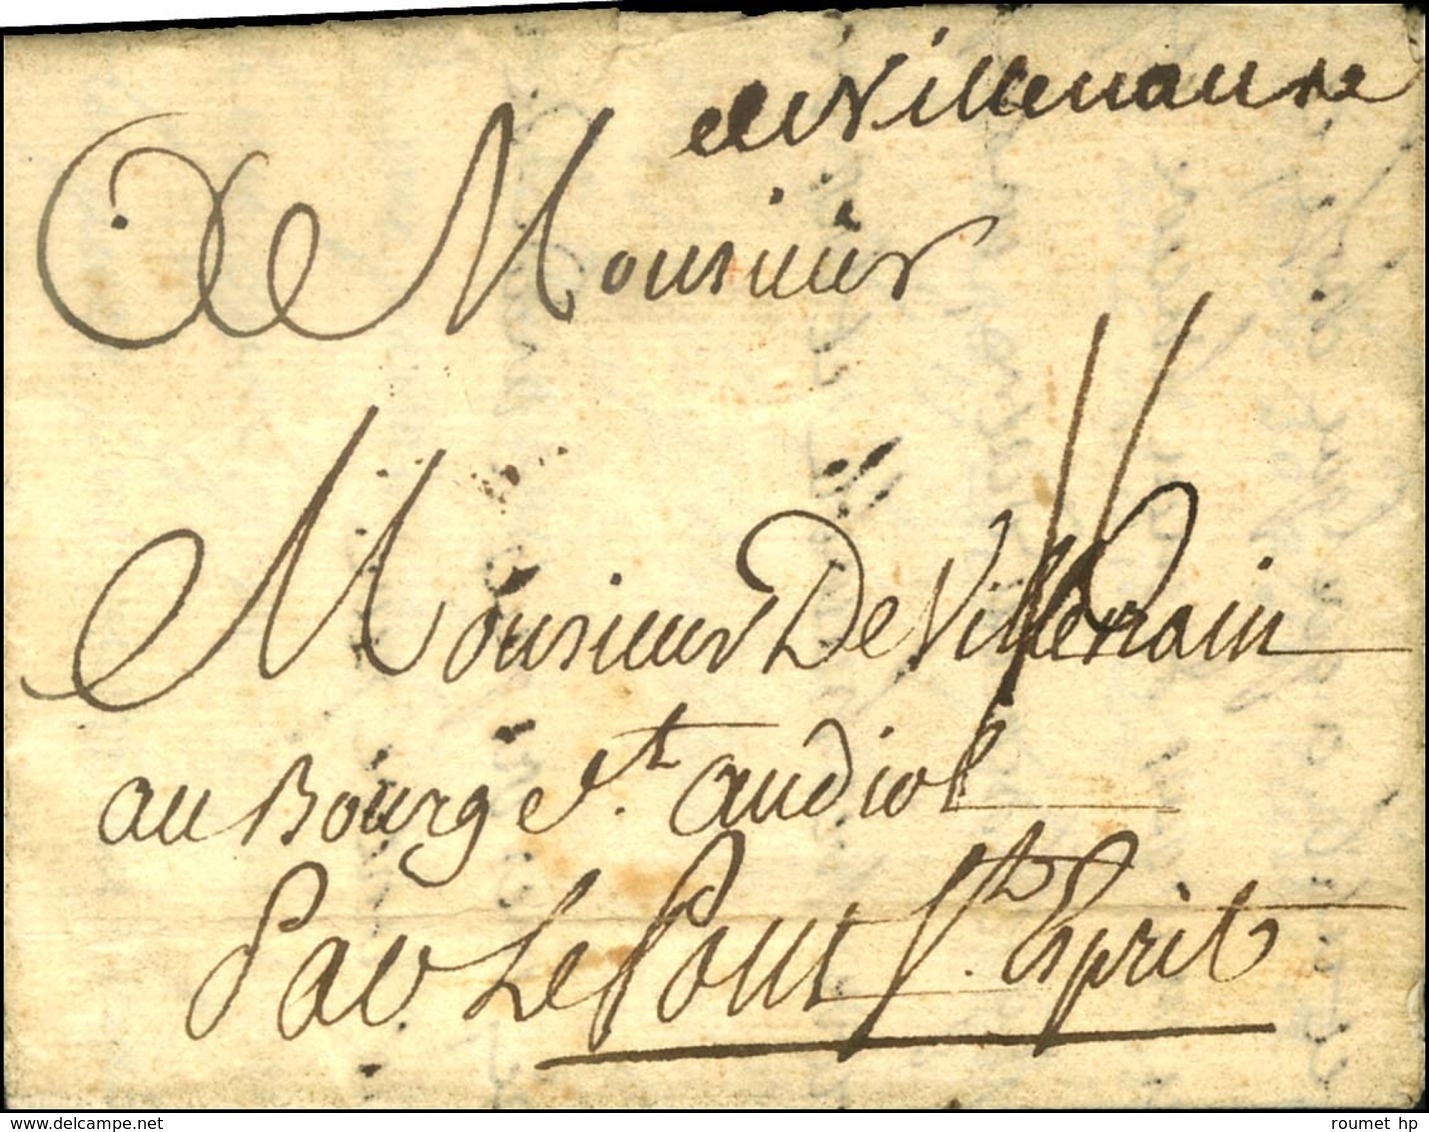 deVillenauxe
A Monsieur
Monsieur De Villenain
au Bourg St. andiol
Par Le Pont St. Esprit
www.delcampe.net
roumet hp